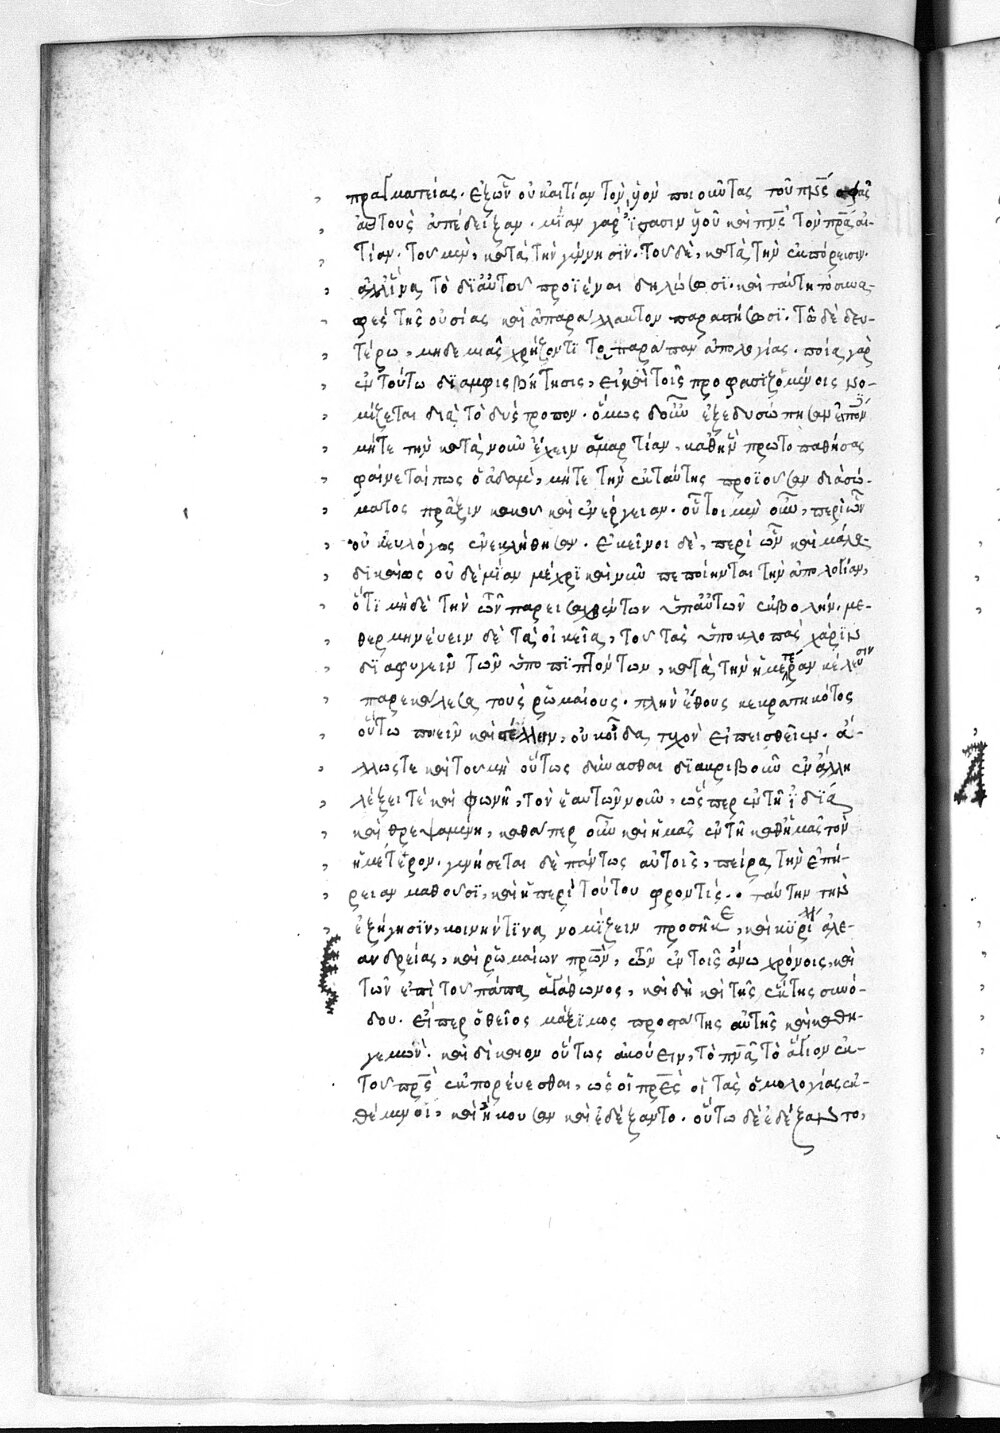 πραγματείας. ἐξ ὧν οὐκ αἰτίαν τὸν υἱὸν ποιοῦντας τοῦ πν̅ς σφᾶς
αὐτοὺς ἀπέδειξαν. μίαν γὰρ ἴσασιν υἱοῦ καὶ πν̅ς τὸν πρ̅α αἰ-
τίαν. τοῦ μὲν, κατὰ τὴν γέννησϊν. τοῦ δὲ, κατὰ τὴν ἐκπόρευσιν.
ἀλλ' ἵνα τὸ δϊ αὐτοῦ προϊέναι δηλώσωσϊ. καὶ ταύτη τὸ συνα-
φὲς τῆς οὐσίας καὶ ἀπαράλλακτον παραστήσωσϊ. τῶ δὲ δευ-
τέρω, μηδεμιᾶς χρήζοντϊ τὸ παράπαν ἀπολογίας. ποία γὰρ
ἐν τούτω δϊαμφισβήτησις, εἰ καὶ τοῖς προφασϊζομένοις νο-
μίζεται διὰ τὸ δύστροπον. ὅμως δ' οὖν ἐξεδυσώπησαν εἰπὸν
μήτε τὴν κατὰ νοῦν ἔχειν ἁμαρτίαν, καθ' ἣν πρωτοπαθήσας
φαίνεταί πως ὁ ἀδαμ, μήτε τὴν ἐκ ταύτης προϊοῦσαν διὰ σώ-
ματος πρᾶξιν κακοῦ καὶ ἐνέργειαν. οὗτοι μὲν οὖν, περὶ ὧν
οὐκ εὐλόγως ἐνεκλήθησαν. ἐκεῖνοι δὲ, περὶ ὧν καὶ μάλα
δικαίως οὐδεμίαν μέχρι καὶ νῦν πεποίηνται τὴν ἀπολογίαν,
ὅτϊ μηδὲ τὴν τῶν παρεισαχθέντων ὑπ' αὐτῶν ἐκβολήν. με-
θερμηνεύειν δὲ τὰ οἰκεῖα, τοῦ τὰς ὑποκλοπὰς χάρϊν
δϊαφυγεῖν τῶν ὑποπϊπτόντων, κατὰ τὴν ἡμετέραν κέλευσιν
παρεκάλεσα τοὺς ῥωμαίους. πλὴν ἔθους κεκρατηκότος
οὕτω ποιεῖν καὶ στέλλειν, οὐκ οἶδα τυχὸν εἰ πεισθεῖεν. ἄλ-
λως τε καὶ τοῦ μὴ οὕτως δύνασθαι δϊακριβοῦν ἐν ἄλλη
λέξει τὲ καὶ φωνῆ, τὸν ἑαυτῶν νοῦν, ὥσπερ ἐν τῆ ἰδίᾳ
καὶ θρεψαμένη, καθάπερ οὖν καὶ ἡμᾶς ἐν τῆ καθ' ἡμᾶς τὸν
ἡμέτερον. γενήσεται δὲ πάντως αὐτοῖς, πείρα τὴν ἐπή-
ρειαν μαθοῦσϊ, καὶ ἡ περὶ τούτου φροντίς. ταύτην τὴν
ἐξήγησϊν, κοινήν τϊνα νομίζειν προσῆκε, καὶ κυρίλλ ἀλε-
ανδρείας, καὶ ῥωμαίων πρων, τῶν ἐν τοῖς ἄνω χρόνοις, καὶ
τῶν ἐπὶ τοῦ πάπα ἀγάθωνος, καὶ δὴ καὶ τῆς ἕκτης συνό-
δου. εἴπερ ὁ θεῖος μάξϊμος προστάτης αὐτῆς καὶ καθη-
γεμών. καὶ δίκαιον οὕτως ἀκούειν, τὸ πν̅α τὸ ἅγιον ἐκ
τοῦ πρ̅ς ἐκπορεύεσθαι, ὡς οἱ πρ̅ες οἱ τὰς ὁμολογίας ἐκ-
θέμενοι, καὶ ἤκουσαν καὶ ἐδέξαντο. οὕτω δὲ ἐδέξαντο,